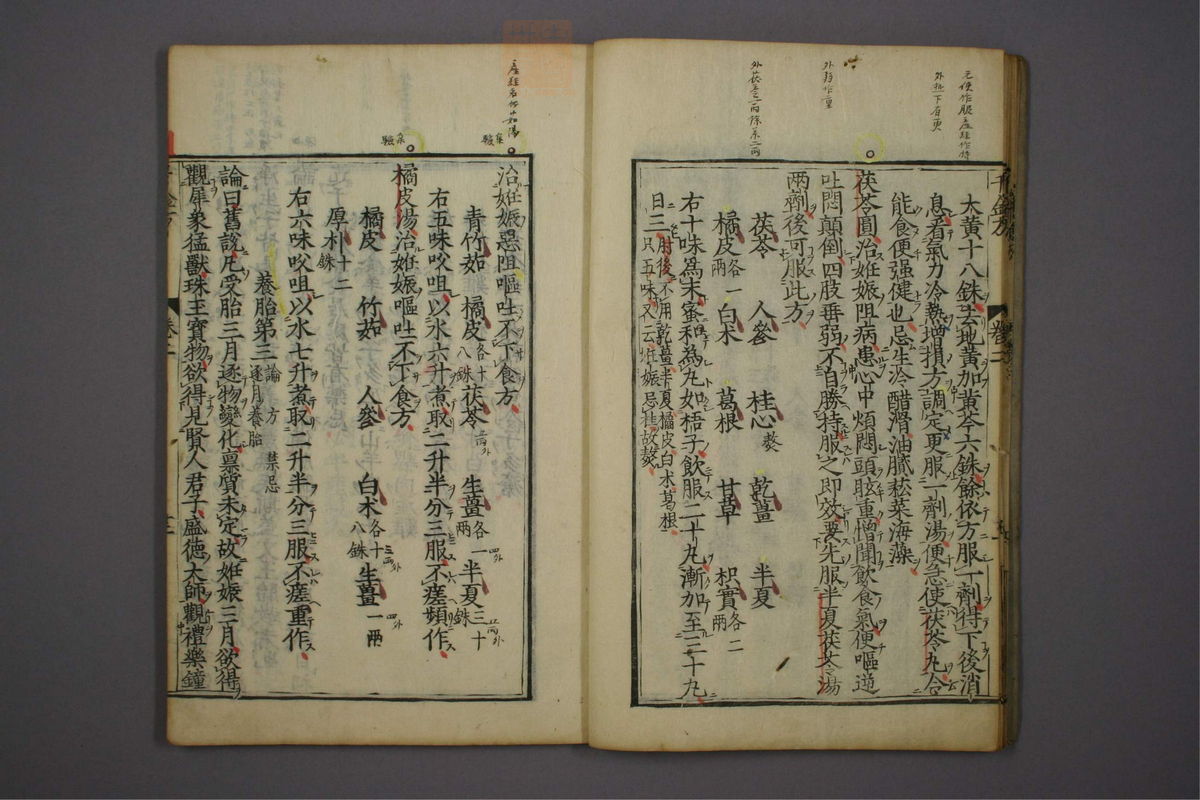 大黃十八銖去地黃加黃芩六銖餘依方服一劑得下後消
息看氣力冷熱增損方調定更服一劑湯便急使茯苓丸合
能食便强健也忌生冷醋滑油膩菘菜海藻
茯苓圓治妊娠阻病患心中煩悶頭眩重憎聞飲食氣便嘔逆
吐悶顛倒四肢垂弱不自勝持服之即效要先服半夏茯苓湯
兩劑後可服此方
茯苓 人參 桂心熬 乾薑 半夏
橘皮各一兩 白朮 葛根 甘草 枳實各二兩
右十味爲末蜜和爲丸如梧子飲服二十丸漸加至三十丸
日三肘後不用乾薑半夏橘皮白朮葛根只五味又云妊娠忌桂故熬
治妊娠惡阻嘔吐不下食方
青竹茹 橘皮各十八銖 茯苓 生薑各一兩 半夏三十銖
右五味㕮咀以水六升煮取二升半分三服不瘥頻作
橘皮湯治妊娠嘔吐不下食方
橘皮 竹茹 人參 白朮各十八銖 生薑一兩
厚朴十二銖
右六味㕮咀以水七升煮取二升半分三服不瘥重作
養胎第三論 方 禁忌 逐月養胎
論曰舊說凡受胎三月逐物變化稟質未定故妊娠三月欲得
觀犀象猛獸珠玉寶物欲得見賢人君子盛德大師觀禮樂鐘